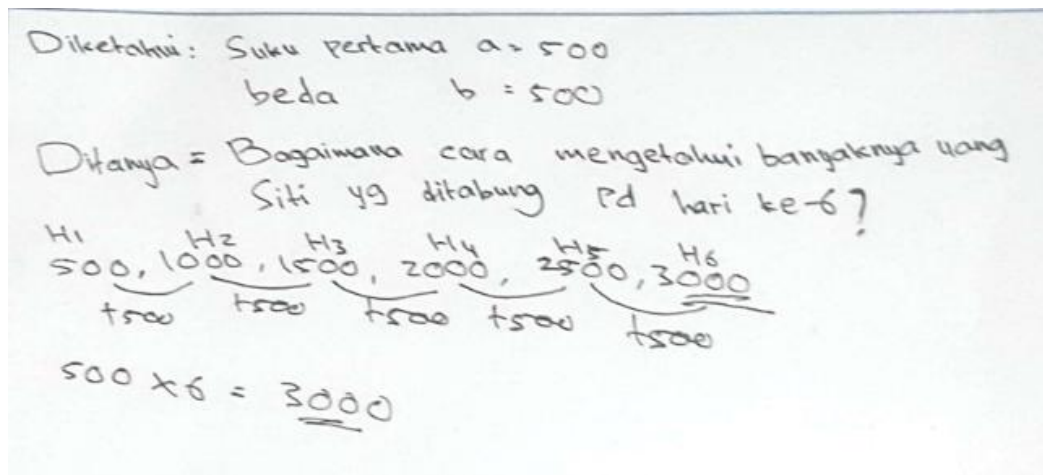 Diketahui: Suku pertama a = 500
beda b = 500
Ditanya = Bagaimana cara mengetahui banyaknya uang
Siti yg ditabung pd hari ke-6?
H1 H2 H3 H4 H5 H6
500, 1000, 1500, 2000, 2500, 3000
+500 +500 +500 +500 +500
500 x 6 = 3000